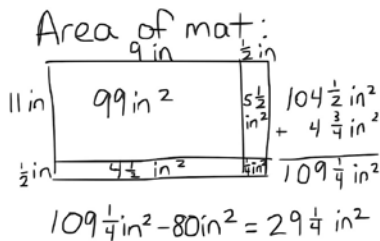 Area of mat:
9 in ½ in
11 in 99 in² 5½ in² 104½ in²
+ 4¾ in²
½ in 4½ in² ¼ in² 109¼ in²
109¼ in² - 80 in² = 29¼ in²